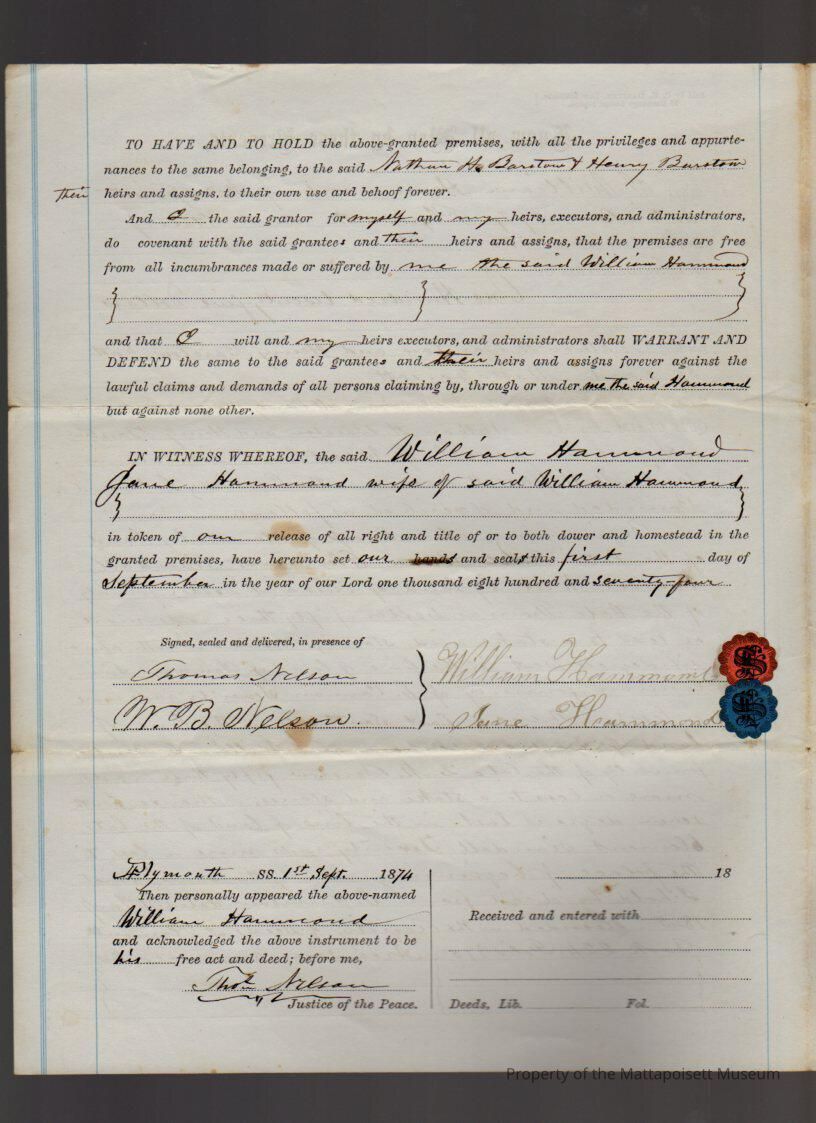 TO HAVE AND TO HOLD the above-granted premises, with all the privileges and appurte-
nances to the same belonging, to the said Nathan H. Barstow & Henry Barstow
their heirs and assigns, to their own use and behoof forever.
And I the said grantor for myself and my heirs, executors, and administrators,
do covenant with the said grantees and their heirs and assigns, that the premises are free
from all incumbrances made or suffered by me the said William Hammond
and that I will and my heirs executors, and administrators shall WARRANT AND
DEFEND the same to the said grantees and their heirs and assigns forever against the
lawful claims and demands of all persons claiming by, through or under me the said Hammond
but against none other.
IN WITNESS WHEREOF, the said William Hammond
Jane Hammond wife of said William Hammond
in token of our release of all right and title of or to both dower and homestead in the
granted premises, have hereunto set our hands and seals this first day of
September in the year of our Lord one thousand eight hundred and seventy-four
Signed, sealed and delivered, in presence of
Thomas Nelson
W. B. Nelson.
William Hammond
Jane Hammond
Plymouth SS. 1st Sept. 1874
Then personally appeared the above-named
William Hammond
and acknowledged the above instrument to be
his free act and deed; before me,
Thos. Nelson
Justice of the Peace.
18
Received and entered with
Deeds, Lib. Fol.
Property of the Mattapoisett Museum